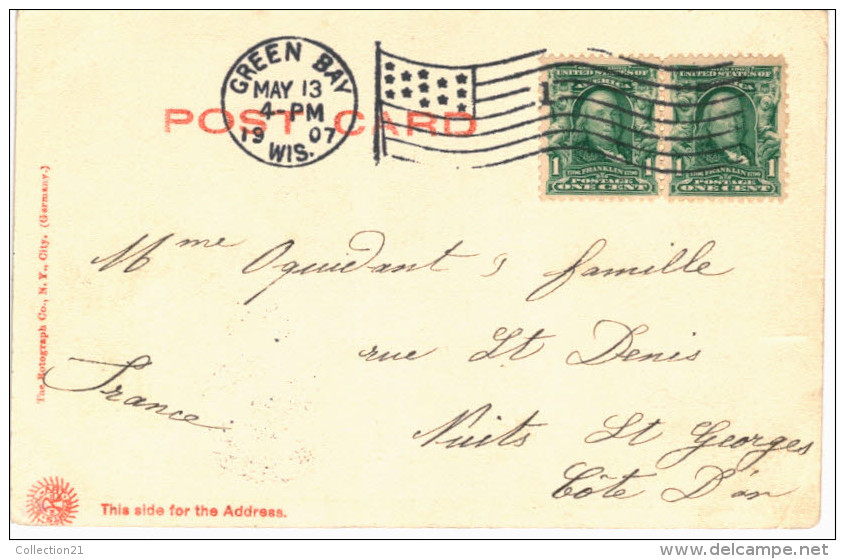 GREEN BAY
MAY 13
4-PM
19 07
WIS.
POST CARD
1
UNITED STATES OF
POSTAGE
ONE CENT
1 FRANKLIN 1
UNITED STATES OF
1 FRANKLIN 1
POSTAGE
ONE CENT
Mme Oquidant & famille
rue St Denis
Nuits St Georges
Côte D'or
France
The Rotograph Co., N. Y., City. (Germany.)
This side for the Address.
Collection21
www.delcampe.net